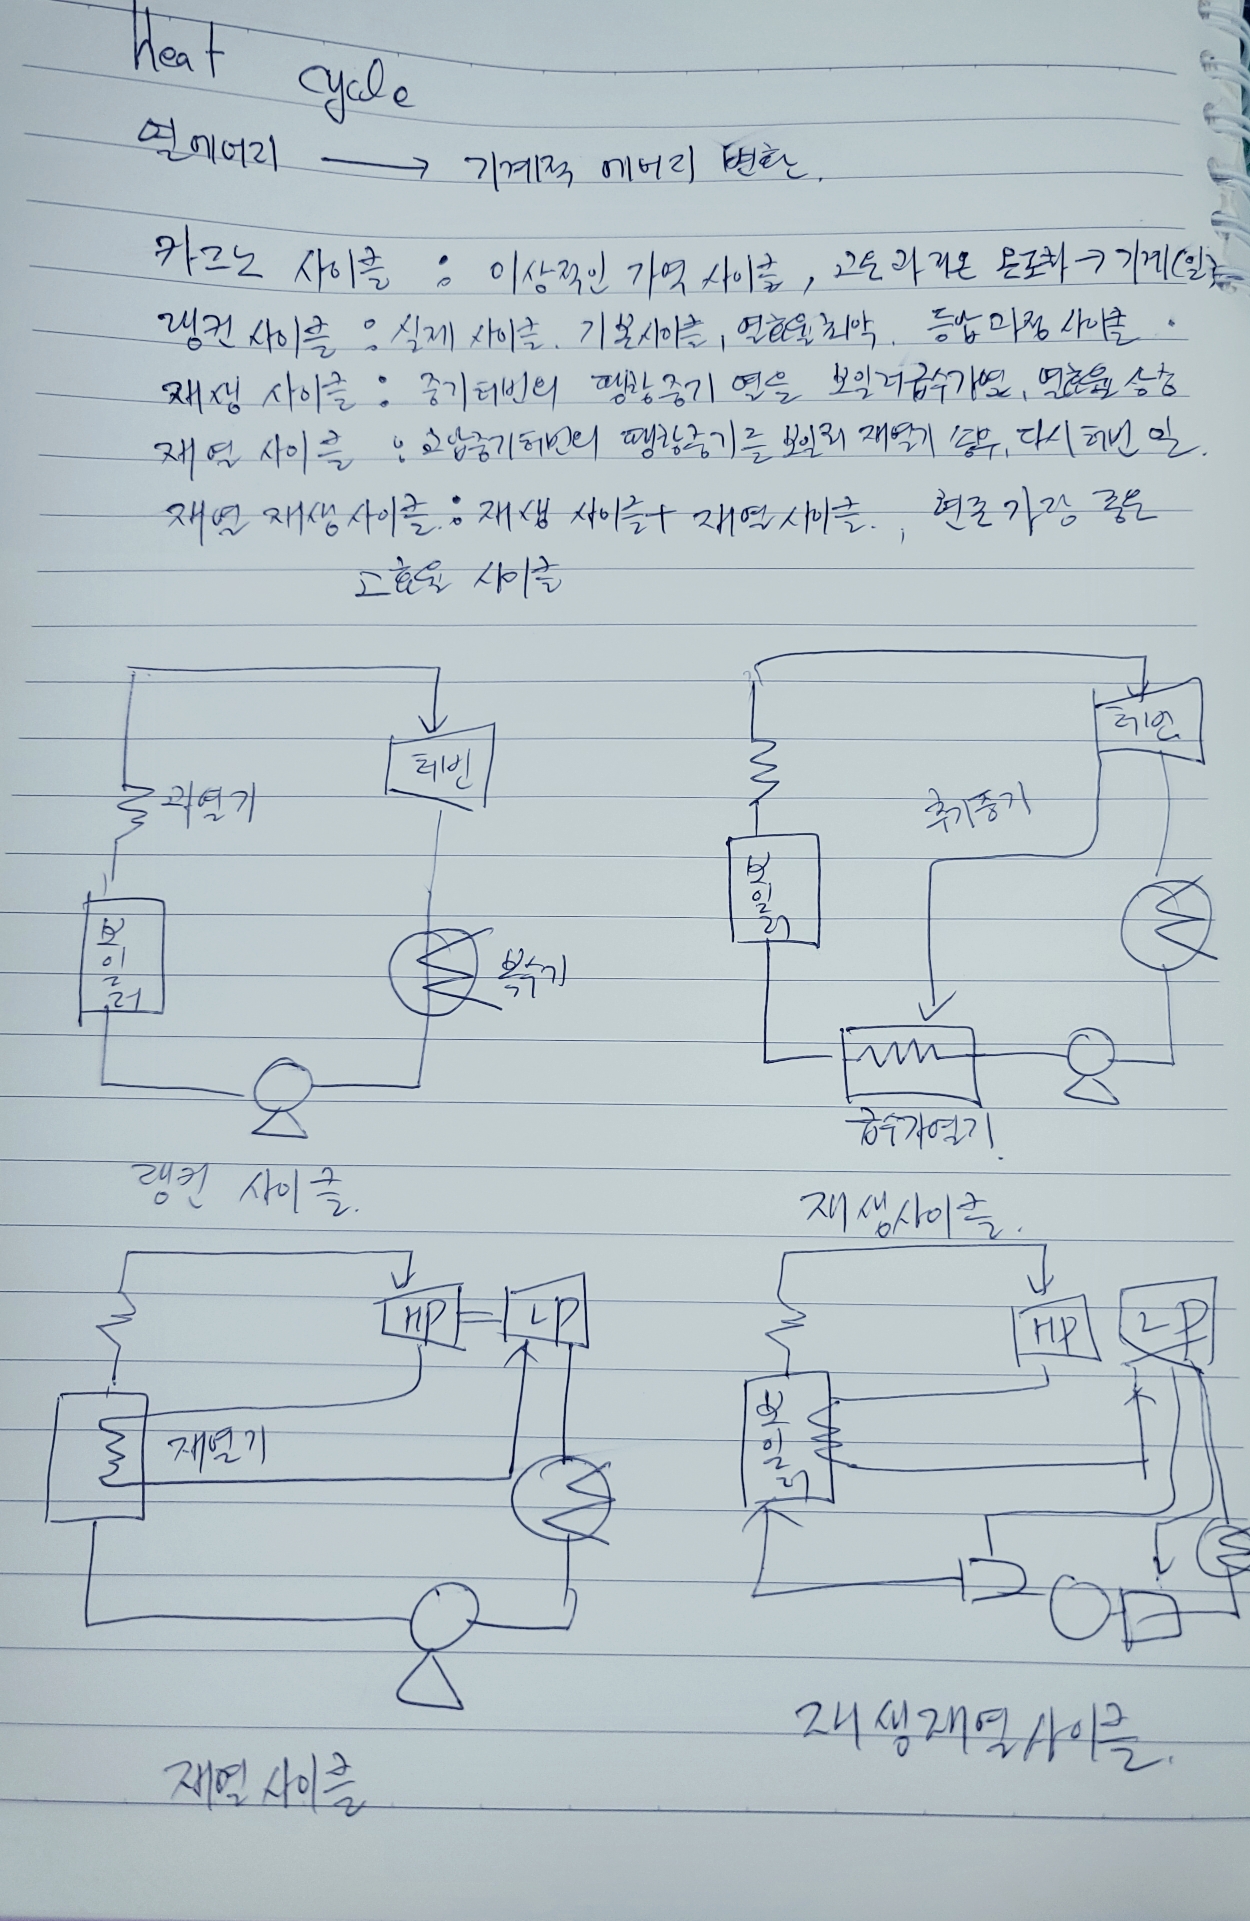 Heat cycle
열에너지 → 기계적 에너지 변환.
카르노 사이클 : 이상적인 가역 사이클, 고온과 저온 온도차 → 기계(일)
랭킨 사이클 : 실제 사이클. 기본사이클, 열효율최악. 등압과정 사이클.
재생 사이클 : 증기터빈의 팽창증기 열을 보일러급수가열, 열효율 상승
재열 사이클 : 고압증기터빈의 팽창증기를 보일러 재열기 다시 터빈 일.
재열 재생사이클 : 재생 사이클 + 재열사이클., 현존 가장 좋은
고효율 사이클
터빈
과열기
보일러
복수기
랭킨 사이클.
터빈
추기증기
보일러
급수가열기.
재생사이클.
HP
LP
재열기
재열사이클
HP
LP
보일러
재생재열사이클.